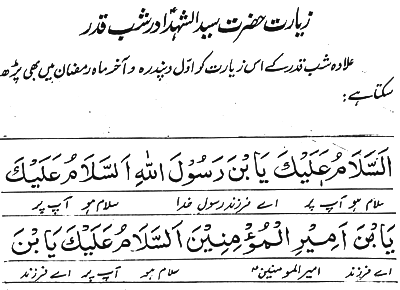 زیارت حضرت سید الشہداءؑ در شب قدر
علاوہ شب قدر کے اس زیارت کو اوّل و پندرہ و آخر ماہ رمضان میں بھی پڑھ
سکتا ہے:
اَلسَّلَامُ عَلَیْكَ یَا بْنَ رَسُوْلَ اللّٰهِ اَلسَّلَامُ عَلَیْكَ
سلام ہو آپ پر اے فرزند رسول خدا سلام ہو آپ پر
یَا بْنَ اَمِیْرِ الْمُؤْمِنِیْنَ اَلسَّلَامُ عَلَیْكَ یَا بْنَ
اے فرزند امیر المومنینؑ سلام ہو آپ پر اے فرزند